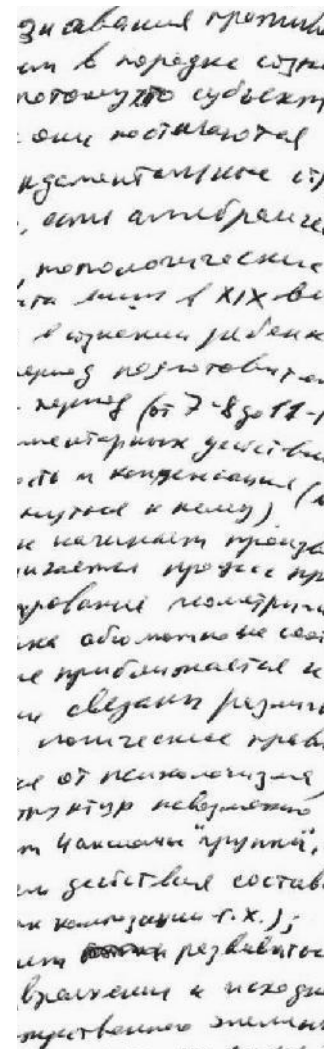 знавания противо
им в порядке созна
потому что субъект
они постигаются
ндаментальные ст
, если алгебраиче
, топологические
лишь в XIX ве
в сознании ребенк
период подготовител
период (от 7-8 до 11-
ментарных действи
ость и конденсация (
нуться к нему)
не начинает произв
ижается процесс пр
ирование геометрич
абсолютно не соот
не приближается к
ни связаны различ
логические прав
от психологизма
структур невозможно
4 аксиомы "группы",
ем действия состав
композиции - Г.Х.);
развиваться
вращении к исходн
шественного элемент